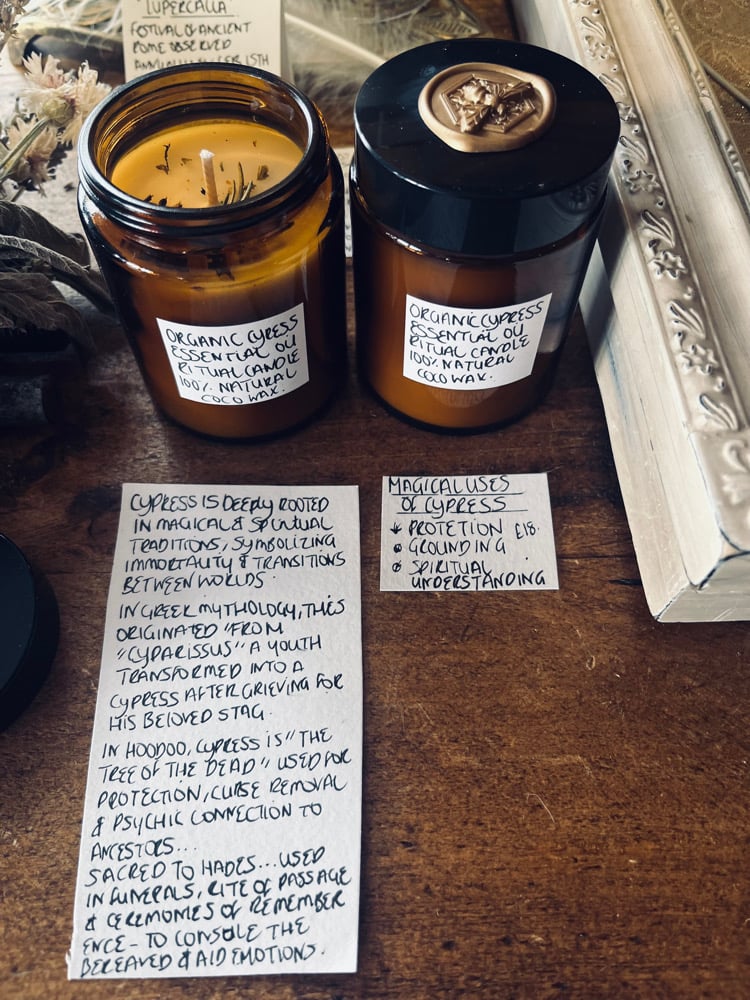 LUPERCALIA
FESTIVAL OF ANCIENT
ROME OBSERVED
ORGANIC CYRESS
ESSENTIAL OIL
RITUAL CANDLE
100% NATURAL
COCO WAX.
ORGANIC CYPRESS
ESSENTIAL OIL
RITUAL CANDLE
100% NATURAL
COCO WAX.
CYPRESS IS DEEPLY ROOTED
IN MAGICAL & SPIRITUAL
TRADITIONS, SYMBOLIZING
IMMORTALITY & TRANSITIONS
BETWEEN WORLDS.
IN GREEK MYTHOLOGY, THIS
ORIGINATED "FROM
"CYPARISSUS" A YOUTH
TRANSFORMED INTO A
CYPRESS AFTER GRIEVING FOR
HIS BELOVED STAG.
IN HOODOO, CYPRESS IS "THE
TREE OF THE DEAD" USED FOR
PROTECTION, CURSE REMOVAL
& PSYCHIC CONNECTION TO
ANCESTORS...
SACRED TO HADES... USED
IN FUNERALS, RITE OF PASSAGE
& CEREMONIES OF REMEMBER
ENCE - TO CONSOLE THE
BEREAVED & AID EMOTIONS.
MAGICAL USES
OF CYPRESS
PROTETION £18.
GROUNDING
SPIRITUAL
UNDERSTANDING